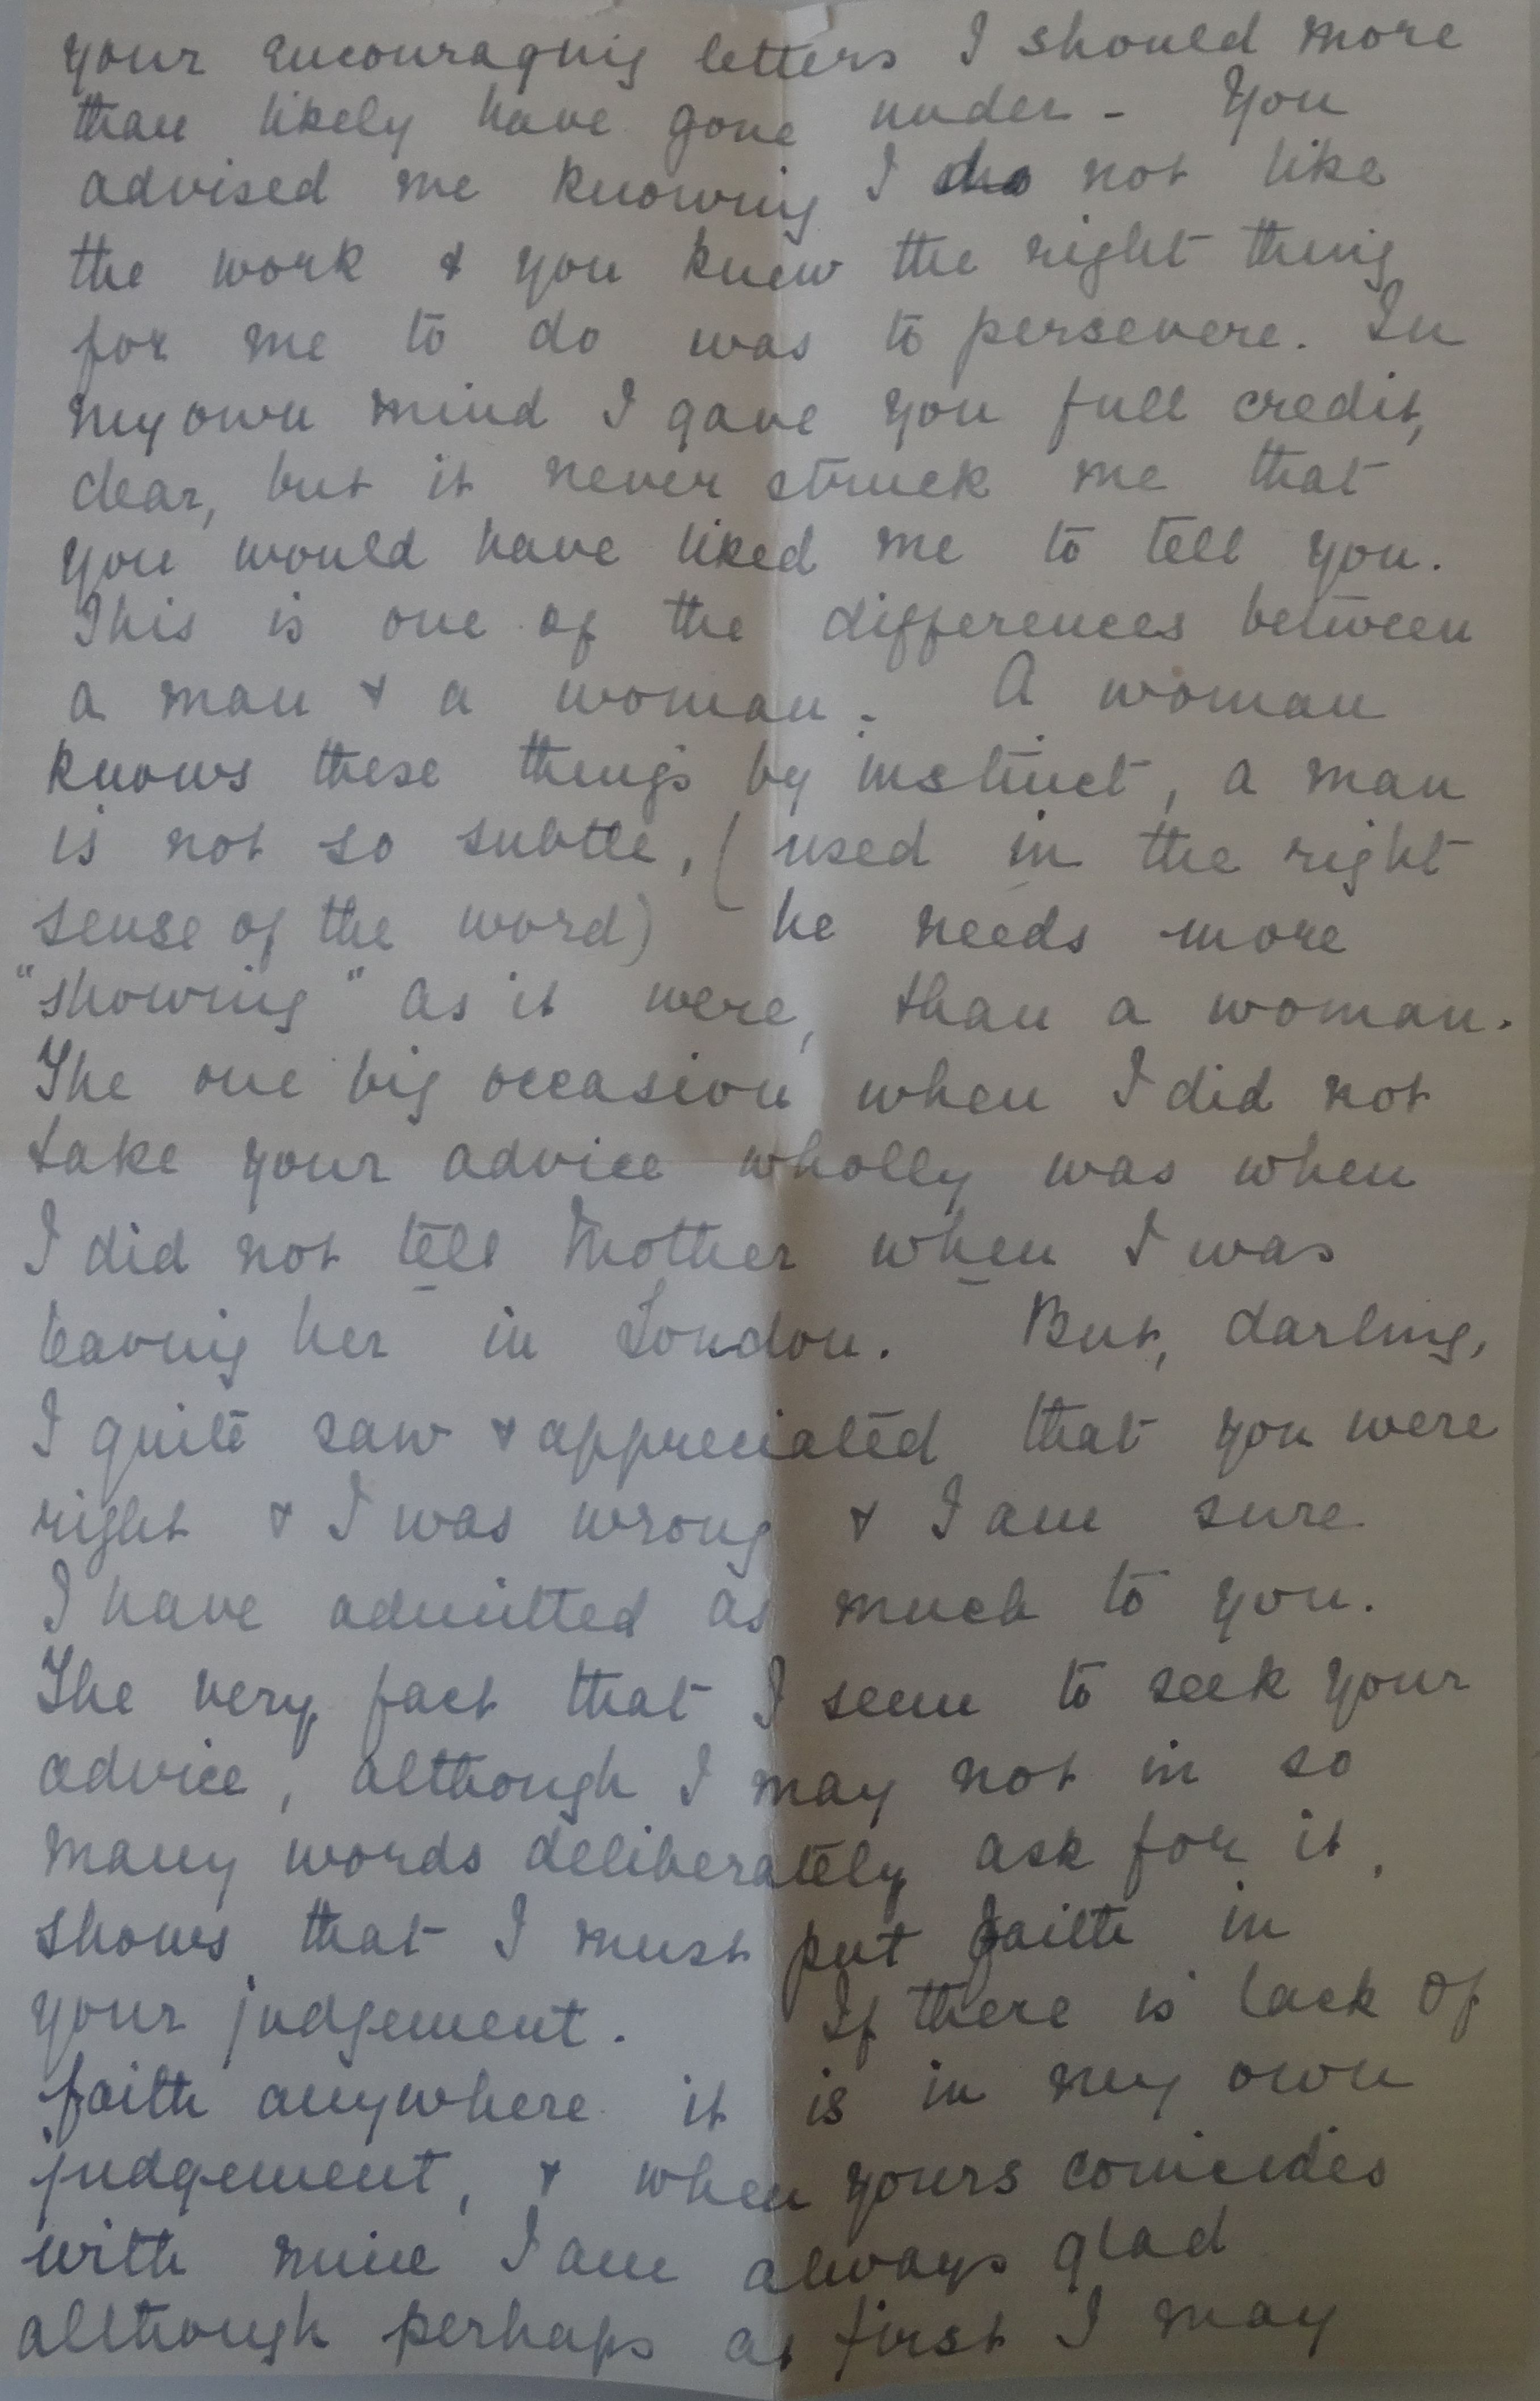 your encouraging letters I should more
than likely have gone under - You
advised me knowing I do not like
the work & you knew the right thing
for me to do was to persevere. In
my own mind I gave you full credit,
dear, but it never struck me that
you would have liked me to tell you.
This is one of the differences between
a man & a woman. A woman
knows these things by instinct, a man
is not so subtle, (used in the right
sense of the word) he needs more
"showing" as it were, than a woman.
The one big occasion when I did not
take your advice wholly was when
I did not tell Mother when I was
leaving her in London. But, darling,
I quite saw & appreciated that you were
right & I was wrong & I am sure
I have admitted as much to you.
The very fact that I seem to seek your
advice, although I may not in so
many words deliberately ask for it,
shows that I must put faith in
your judgement. If there is lack of
faith anywhere it is in my own
judgement, & when yours coincides
with mine I am always glad
although perhaps at first I may